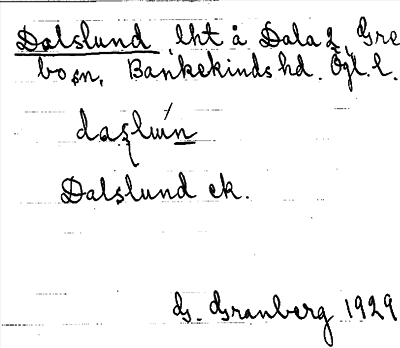 Dalslund, lht å Dala Ä, Gre
bo sn, Bankekinds hd. Ögl. l.
Dalslund ek.
G. Granberg 1929